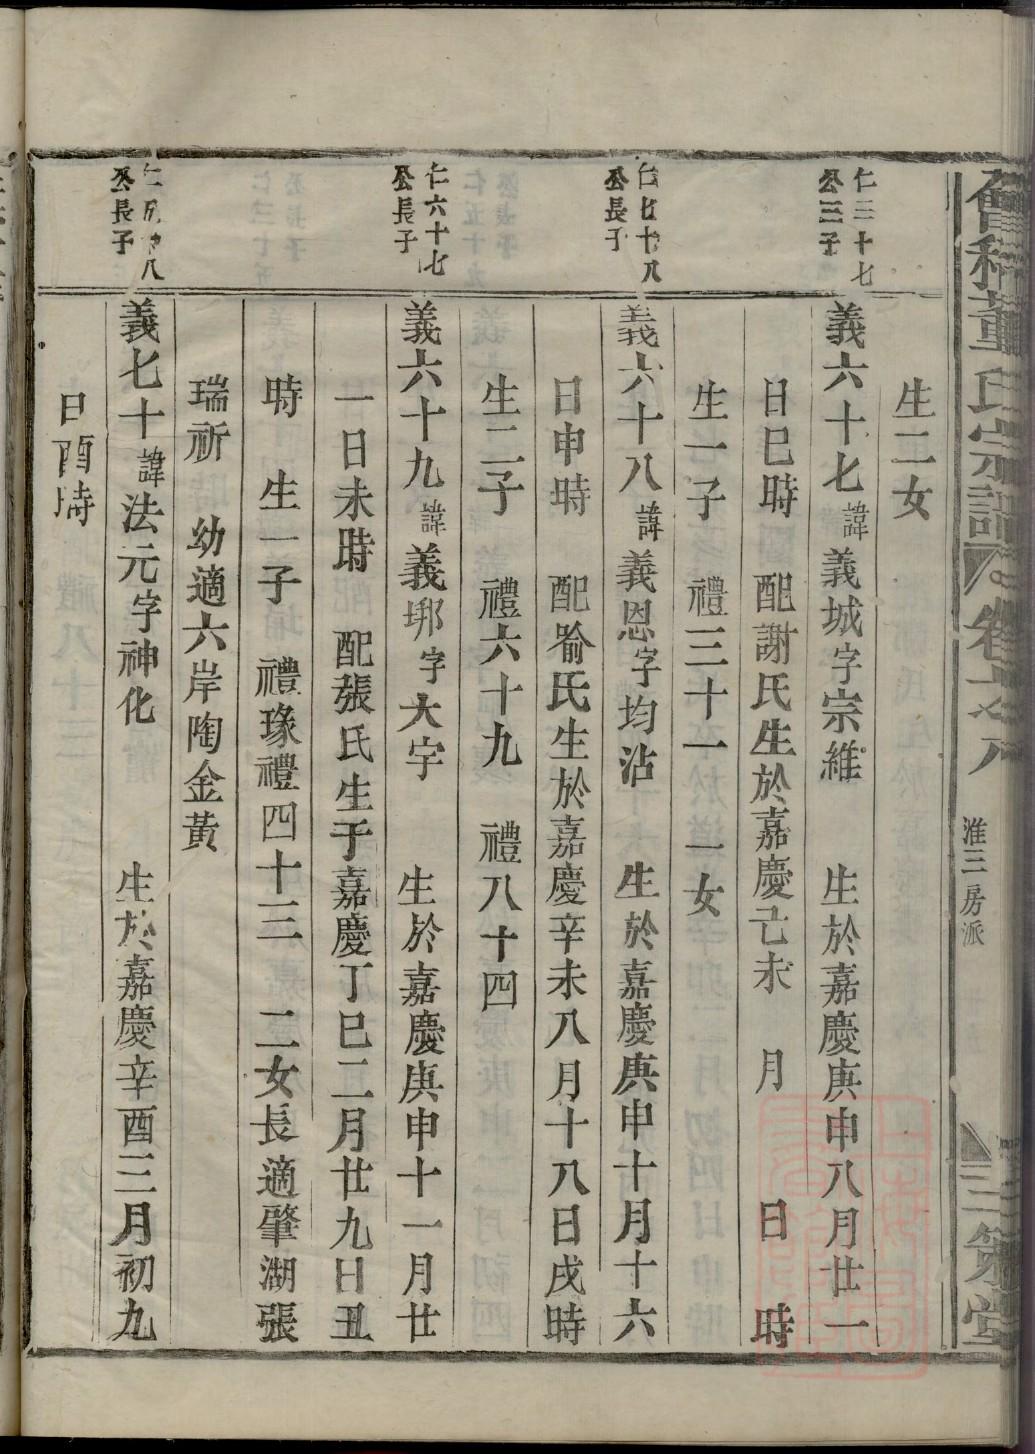 董氏宗譜
卷
淮三房派
三策堂
生二女
仁三十七
公三子
義六十七諱義城字宗維 生於嘉慶庚申八月廿一
日巳時 配謝氏生於嘉慶己未 月 日 時
生一子 禮三十一 一女
十八
公長子
義六十八諱義恩字均沾 生於嘉慶庚申十月十六
日申時 配喻氏生於嘉慶辛未八月十八日戌時
生二子 禮六十九 禮八十四
仁六十七
公長子
義六十九諱義琊字大宇 生於嘉慶庚申十一月廿
一日未時 配張氏生于嘉慶丁巳二月廿九日丑
時 生一子 禮瑑禮四十三 二女長適肇湖張
瑞祈 幼適六岸陶金黃
公長子
義七十諱法元字神化 生於嘉慶辛酉三月初九
日酉時